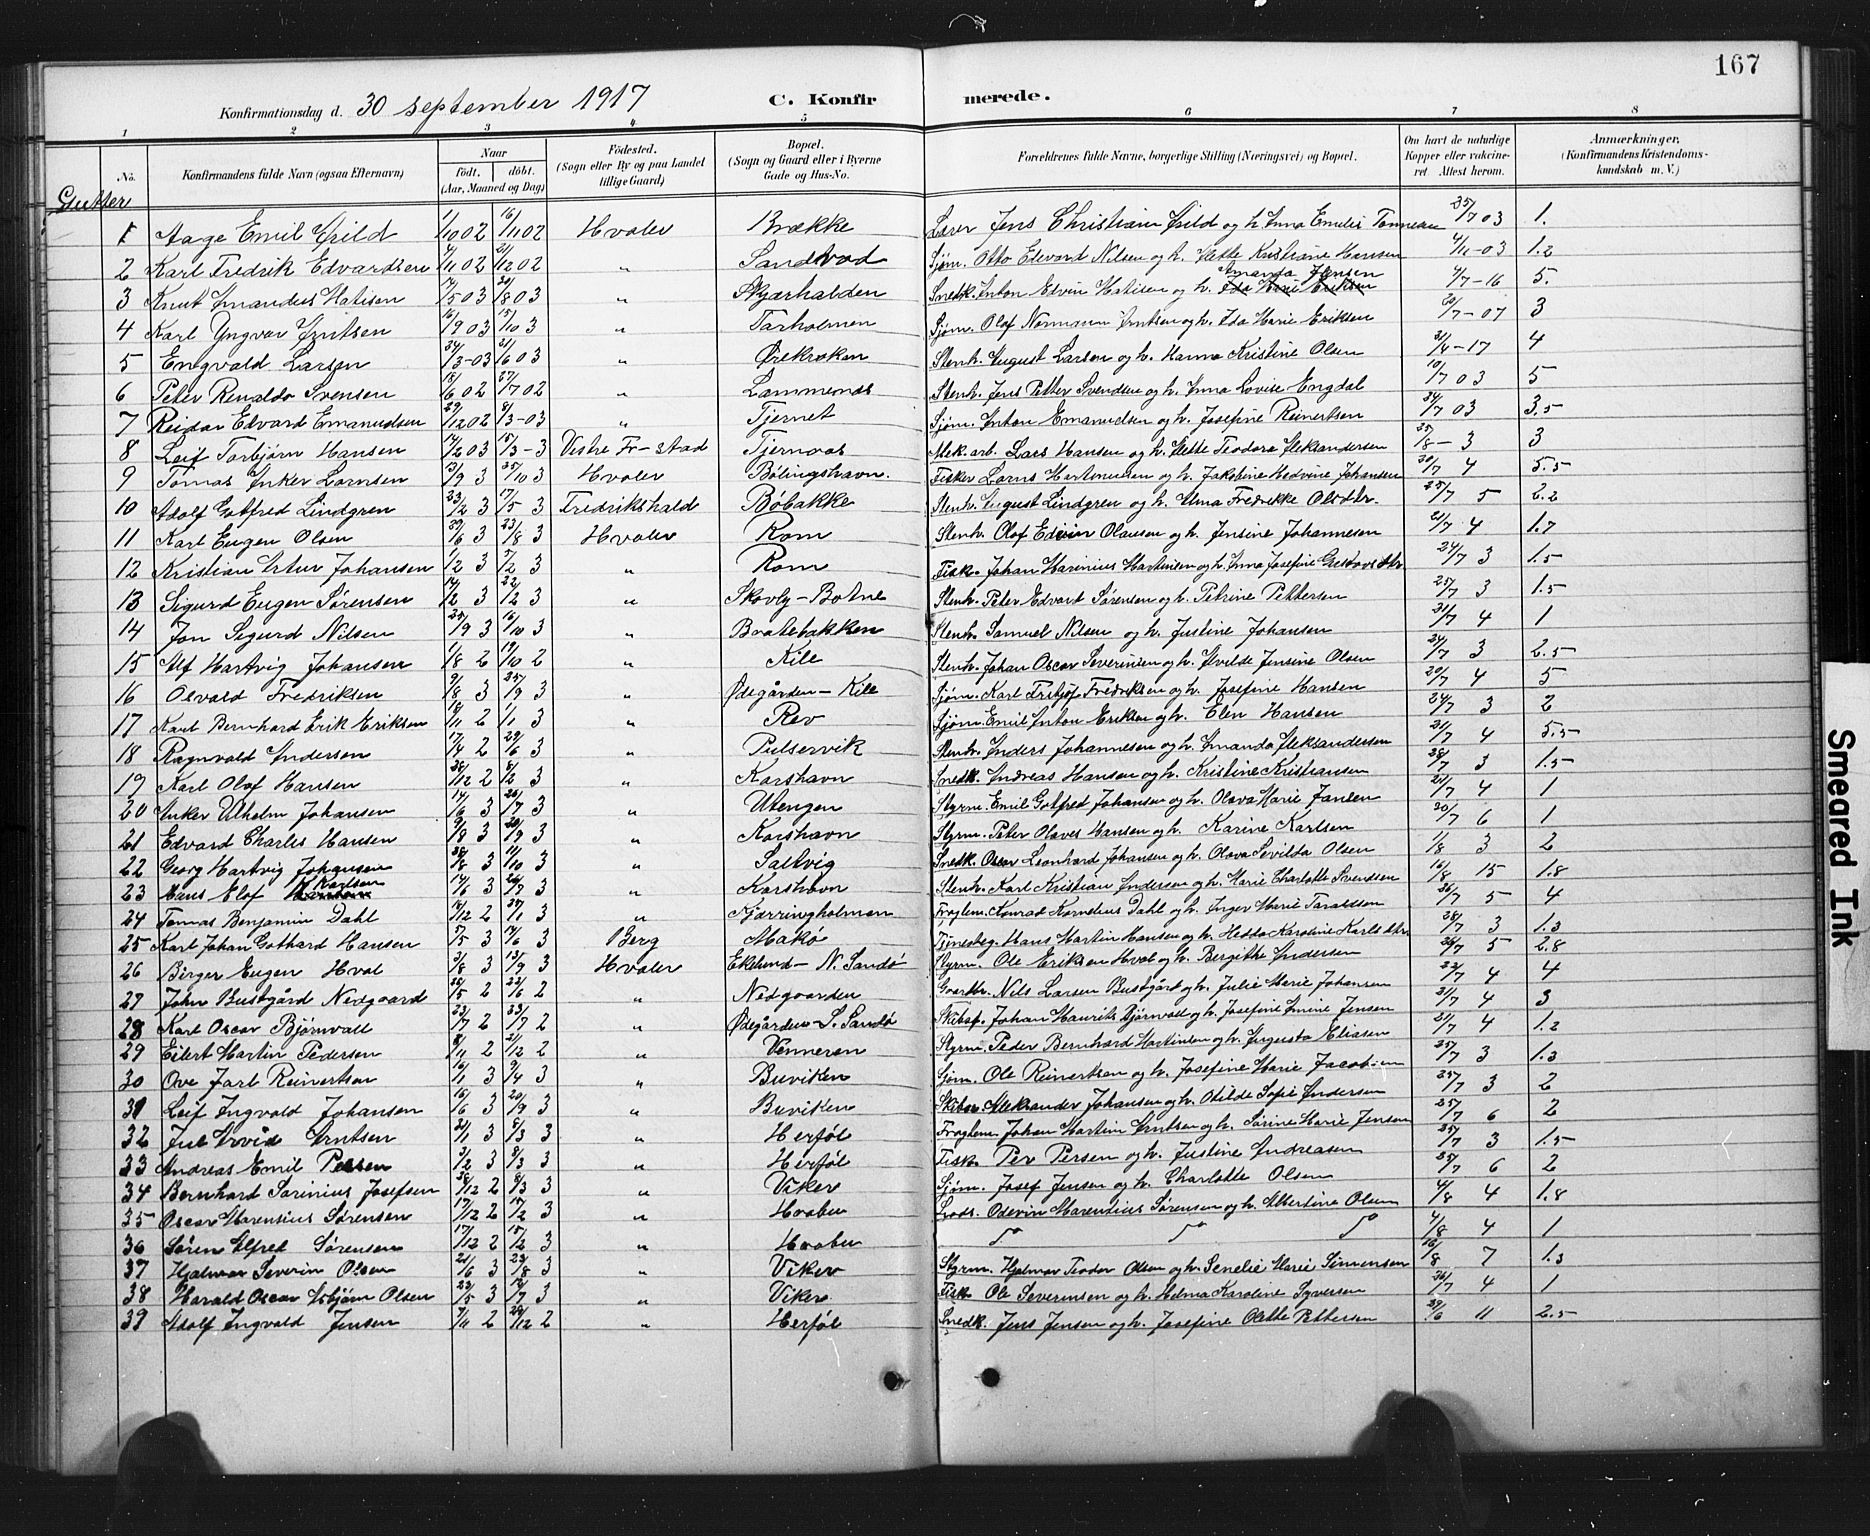 167
Konfirmationsdag d. 30 september 1917 C. Konfirmerede.
1 2 3 4 5 6 7 8
No. Konfirmandens fulde Navn (ogsaa Efternavn) Naar født. døbt. (Aar, Maaned og Dag) Fødested. (Sogn eller By og paa Landet tillige Gaard) Bopæl. (Sogn og Gaard eller i Byerne Gade og Hus-No. Forældrenes fulde Navne, borgerlige Stilling (Næringsvei) og Bopæl. Om havt de naturlige Kopper eller vakcineret. Attest herom. Anmærkninger, (Konfirmandens Kristendomskundskab m. V.)
Gutter
1 Aage Emil Hvaler Brække Jens Christian og h. Anna 25/7 03 1.
2 Karl Fredrik Edvardsen 4/11 02 21/12 02 " Sandvad Sjøm. Otto Edvard Nilsen og h. Jette Kristiane Hansen 4/11-03 1.2
3 Knut Amandus " Skjærhalden Snedk. Anton Edvin og h. Amanda Jensen 4/7-16 5.
4 Karl Yngvar Arntsen 16/9 03 15/10 3 " Tarholmen Sjøm. Olof Normann Arntsen og h. Ida Marie Eriksen 20/7-07 3
5 Engvald Larsen 24/3-03 21/6 03 " Ørekroken Stenh. August Larsen og h. Hanna Kristine Olsen 4
6 Peter Renaldo Svensen 18/6 02 27/7 02 " Stenh. Jens Petter Svendsen og h. Anna Lovise Engdal 10/7 03 5
7 Reidar Edvard Emanuelsen 29/12 02 8/3-03 " Tjernet Sjøm. Anton Emanuelsen og h. Josefine Reinertsen 24/7 03 3.5
8 Leif Torbjørn Hansen 14/2 03 15/3-3 Vestre Fr-stad Tjernaas Mek.arb. Lars Hansen og h. Jette Teodora Aleksandersen 25/8-3 3
9 Tomas Anker Larnsen 21/9 3 25/10 3 Hvaler Bølingshavn. Fisker Larns og h. Jakobine Hedvine Johansen 20/7 4 5.5
10 Adolf Gotfred Lindgren 23/2 3 17/5 3 Fredrikshald Bøbakke Stenh. August Lindgren og h. Alma Fredrikke Olsdtr. 25/7 5 2.2
11 Karl Eugen Olsen 29/6 3 23/8 3 Hvaler Rom Stenh. Olof Edvin Olausen og h. Jensine Johannesen 21/7 4 1.7
12 Kristian Artur Johansen 1/2 3 7/2 3 " Rom Fisk. Johan Marinius Martinsen og h. Anna Josefine Gustavsdtr. 24/7 3 1.5
13 Sigurd Eugen Sørensen 14/2 3 22/2 3 " Skovly-Botne Stenh. Peter Edvart Sørensen og h. Petrine Pettersen 25/7 3 1.5
14 Jon Sigurd Nilsen 25/9 3 16/10 3 " Bratebakken Stenh. Samuel Nilsen og h. Justine Johansen 21/7 4 1
15 Alf Hartvig Johansen 1/8 2 19/10 2 " Kile Stenh. Johan Oscar Severinsen og h. Jensine Olsen 24/7 3 2.5
16 Osvald Fredriksen 9/8 3 25/9 3 " Ødegården-Kile Sjøm. Karl Fritjof Fredriksen og h. Josefine Hansen 20/7 4 5
17 Karl Bernhard Erik Eriksen 18/11 2 1/1 3 " Rev Sjøm. Emil Anton Eriksen og h. Elen Hansen 24/7 3 2
18 Ragnvald Andersen 17/4 2 29/6 3 " Pulservik Stenh. Anders Johannesen og h. Amanda Aleksandersen 21/7 4 5.5
19 Karl Olof Hansen 26/12 2 8/2 3 " Korshavn Snedk. Andreas Hansen og h. Kristine Kristiansen 28/7 3 1.5
20 Anker Vilhelm Johansen 14/6 3 26/7 3 " Utengen Styrm. Emil Gotfred Johansen og h. Olava Marie Jansen 21/7 4 1
21 Edvard Charles Hansen 9/8 3 20/9 3 " Korshavn Styrm. Peter Olaves Hansen og h. Karine Karlsen 20/7 6 1
22 Georg Hartvig Johansen 28/8 3 11/10 3 " Saltvig Snedk. Oscar Leonhard Johansen og h. Olava Sevilda Olsen 1/8 3 2
23 Hans Elof Karlsen 14/6 3 26/7 3 " Korshavn Stenh. Karl Kristian Andersen og h. Marie Charlotte Svendsen 16/8 15 1.8
24 Tomas Benjamin Dahl 16/12 2 27/1 3 " Kjærringholmen Fraglem. Konrad Kornelius Dahl og h. Inger Marie Taraldsen 26/7 5 4
25 Karl Johan Gothard Hansen 5/5 3 14/6 3 Berg Makø Hans Martin Hansen og h. Hedda Karoline Karlsdtr. 28/7 3 1.3
26 Birger Eugen Hval 3/8 3 13/9 3 Hvaler Ekelund-N. Sandø Styrm. Ole Eriksen Hval og h. Bergithe Andersen 26/7 5 2.8
27 John Bustgård Nedgaard 26/5 2 22/6 2 " Nedgaarden Gaardbr. Nils Larsen Bustgård og h. Julie Marie Johansen 22/7 4 4
28 Karl Oscar Bjørnvall 23/7 2 " Ødegården S. Sandø Johan Maurits Bjørnvall og h. Josefine Amine Jensen 21/7 4 3
29 Eilert Martin Pedersen 8/11 2 21/12 2 " Venneren Styrm. Peder Bernhard Martinsen og h. Augusta Eliasen 21/7 4 1.2
30 Ove Jarl Reinertsen 16/1 3 9/4 3 " Buviken Sjøm. Ole Reinertsen og h. Josefine Marie Jacobsen 25/7 3 1.3
31 Leif Ingvald Johansen 16/6 3 20/9 3 " Buviken Aleksander Johansen og h. Otilde Sofie Andersen 25/7 3 2
32 Juel Arvid Arntsen 21/1 3 8/3 3 " Herføl Fraglem. Johan Martin Arntsen og h. Sørine Marie Jensen 25/7 6 2
33 Andreas Emil Persen 3/2 3 8/3 3 " Herføl Fisk. Per Persen og h. Justine Andreasen 25/7 3 1.5
34 Bernhard Sarinius Josefsen 28/12 2 8/3 3 " Viker Sjøm. Josef Jensen og h. Charlotte Olsen 25/7 6 2
35 Oscar Marensius Sørensen 17/12 2 15/2 3 " Hvabu Lods. Odevin Marentius Sørensen og h. Albertine Olsen 4/8 4 1.8
36 Søren Alfred Sørensen 17/12 2 15/2 3 " Hvabu do do do 4/8 4 1
37 Hjalmar Severin Olsen 21/6 3 23/8 3 " Viker Styrm. Hjalmar Teodor Olsen og h. Senelie Marie Simensen 16/8 7 1.3
38 Harald Oscar Asbjørn Olsen 22/5 3 12/7 3 " Viker Fisk. Ole Severinsen og h. Helma Karoline Syversen 26/7 4 1
39 Adolf Ingvald Jensen 7/11 2 28/12 2 " Herføl Snedk. Jens Jensen og h. Josefine Olette Pettersen 29/6 11 2.5
Smeared Ink